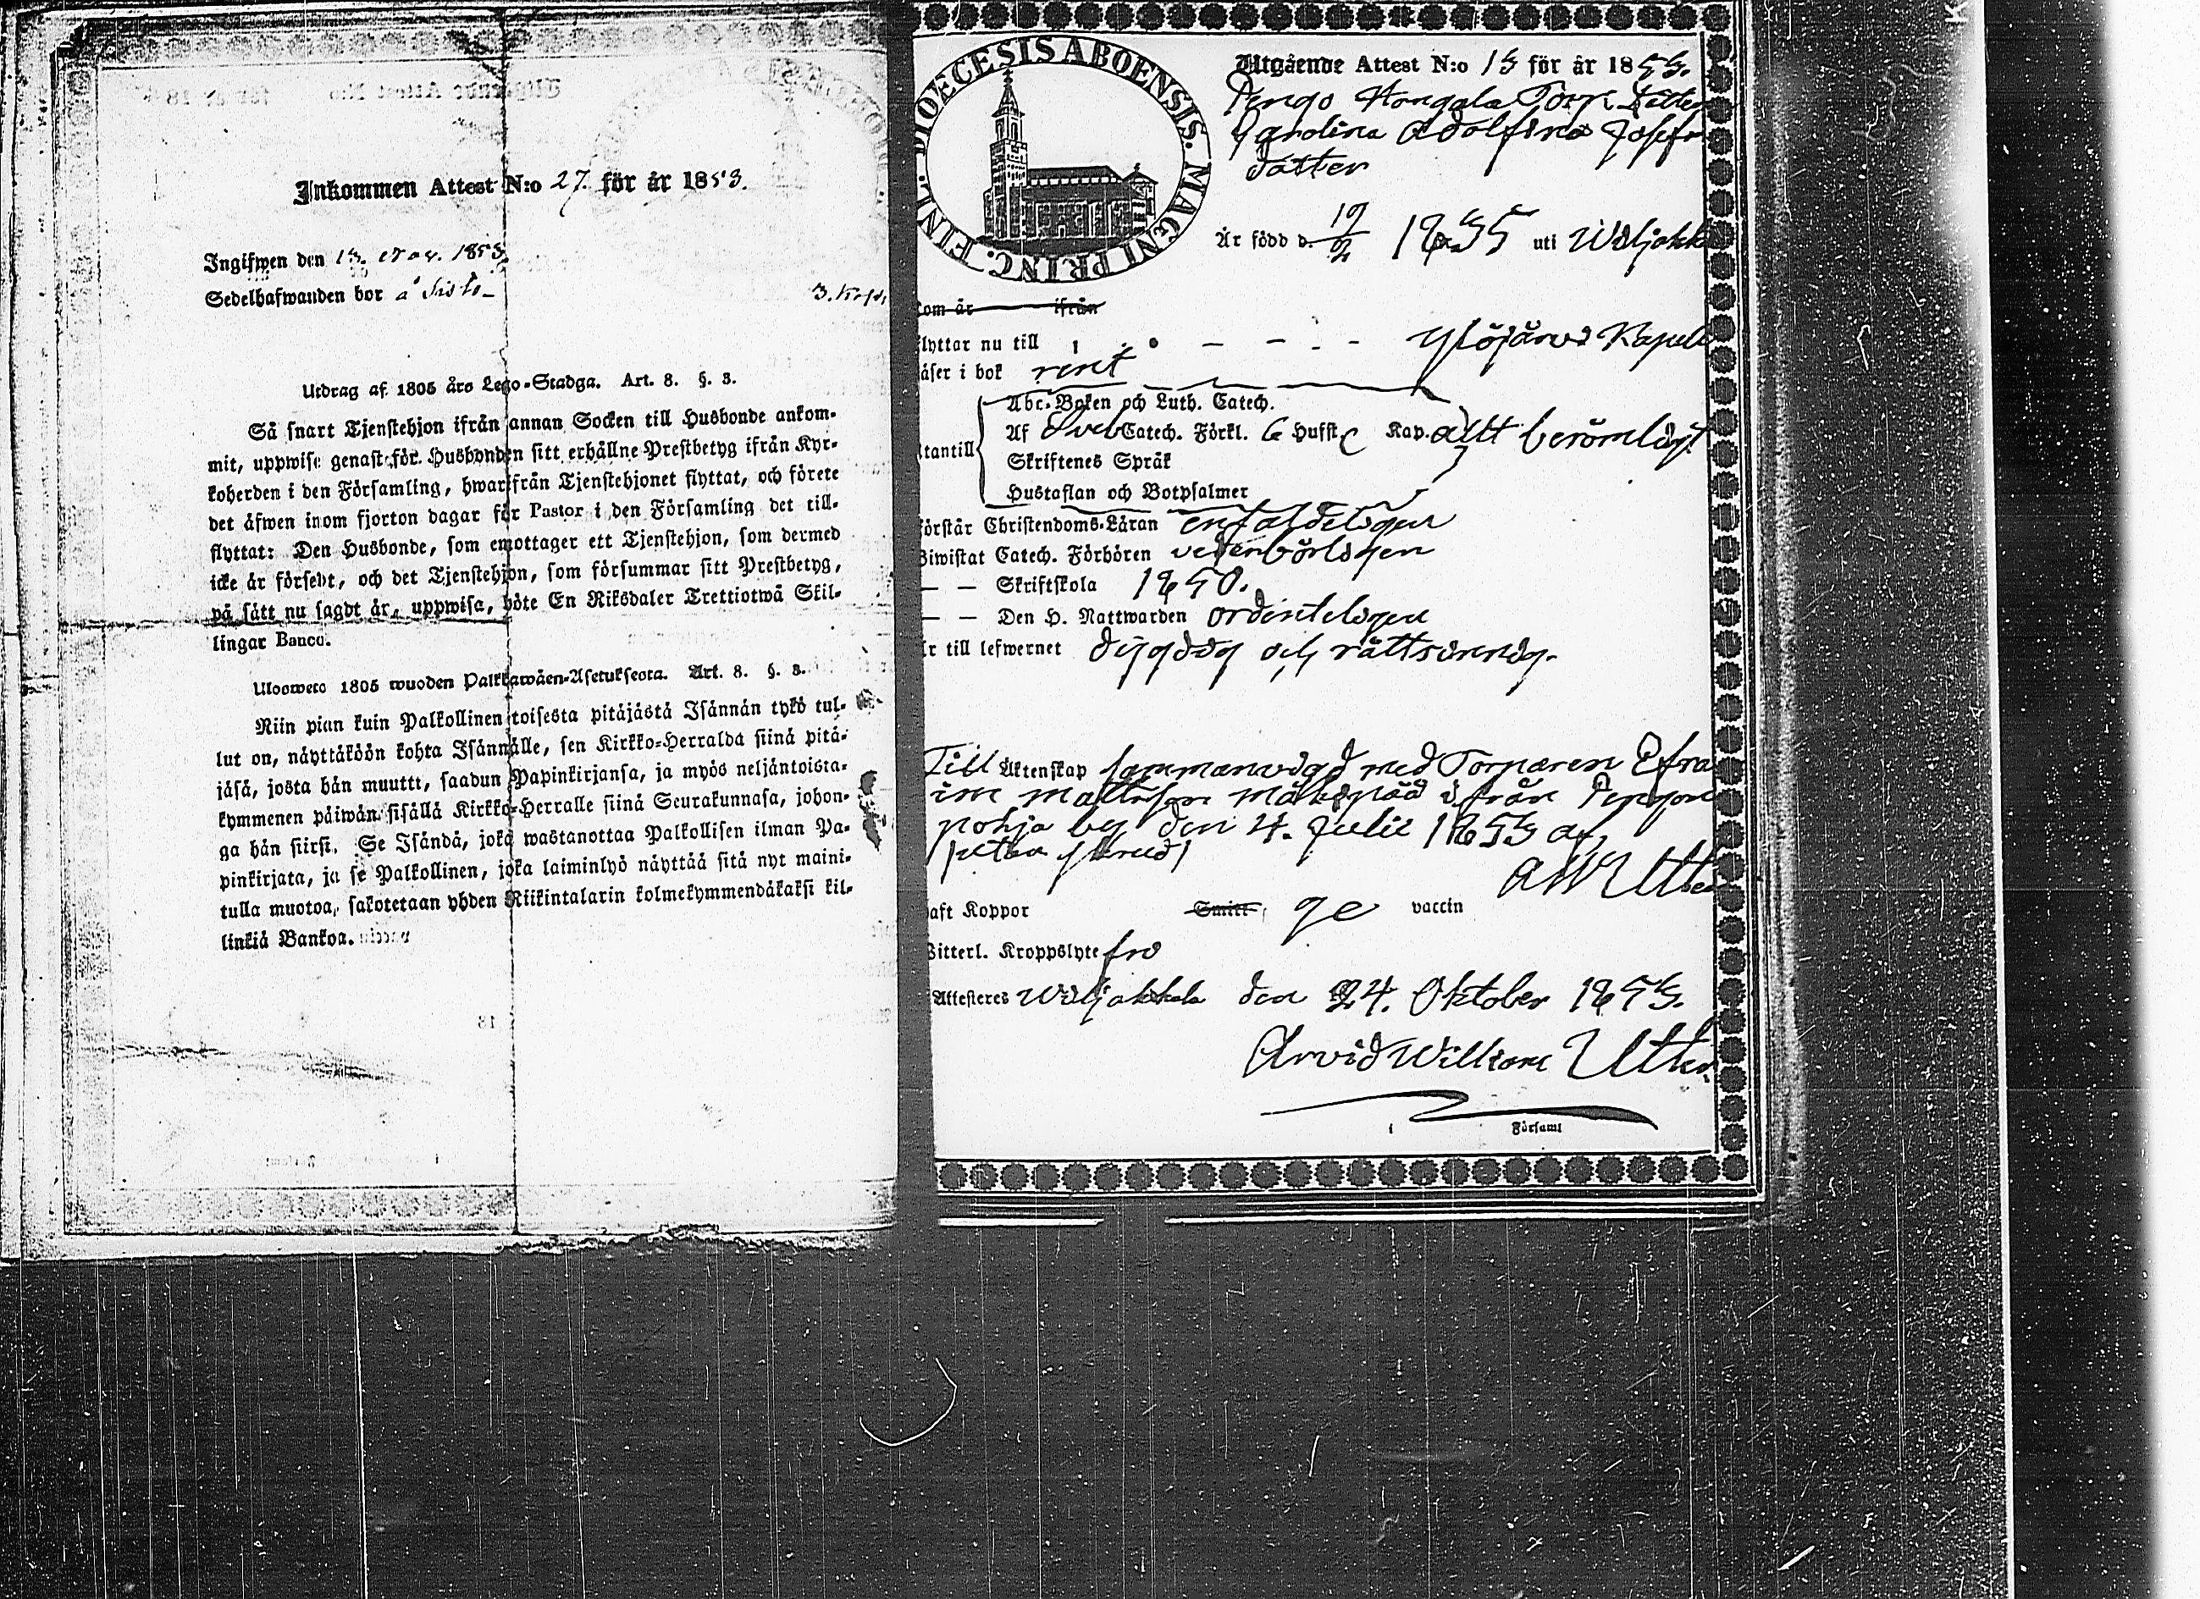 Inkommen Attest N:o 27. för år 1853.
Ingifwen den 13. Nov. 1853.
Sedelhafwanden bor å Sisto
Utdrag af 1805 års Lego-Stadga. Art. 8. §. 3.
Så snart Tjenstehjon ifrån annan Socken till Husbonde ankom-
mit, uppwise genast för Husbonden sitt erhållne Prestbetyg ifrån Kyr-
koherden i den Församling, hwarifrån Tjenstehjonet flyttat, och förete
det äfwen inom fjorton dagar för Pastor i den Församling det till-
flyttat: Den Husbonde, som emottager ett Tjenstehjon, som dermed
icke är försedt, och det Tjenstehjon, som försummar sitt Prestbetyg,
på sätt nu sagdt är, uppwisa, böte En Riksdaler Trettiotwå Skil-
lingar Banco.
Ulosweto 1805 wuoden Palkkawäen-Asetuksesta. Art. 8. §. 3.
Niin pian kuin Palkollinen toisesta pitäjästä Isännän tykö tul-
lut on, näyttäköön kohta Isännälle, sen Kirkko-Herralda siinä pitä-
jäsä, josta hän muutti, saadun Papinkirjansa, ja myös neljäntoista-
kymmenen päiwän sisällä Kirkko-Herralle siinä Seurakunnasa, johon-
ga hän siirsi. Se Isändä, joka wastanottaa Palkollisen ilman Pa-
pinkirjata, ja se Palkollinen, joka laiminlyö näyttää sitä nyt maini-
tulla muotoa, sakotetaan yhden Riikintalarin kolmekymmendäkaksi kil-
linkiä Bankoa.
DIOECESIS ABOENSIS. MAGNI PRINC. FINL.
Utgående Attest N:o 13 för år 1853.
Pengo Hongala Torp. Dotter
Carolina Adolfina Josefs
dotter
Är född d. 19/2 1835 uti Wiljakk
Kom år ifrån
flyttar nu till Ylöjärvi Kapell
läser i bok rent
Abc-Boken och Luth. Catech.
Af Sveb Catech. Förkl. 6 Hufst. Kap. allt berömligt
Utantill
Skriftenes Språk
Hustaflan och Botpsalmer
förstår Christendoms-Läran enfaldeligen
Biwistat Catech. Förhören vederbörligen
— — Skriftskola 1850.
— — Den H. Nattwarden ordenteligen
Är till lefwernet dygdig och rättsinnig.
Till Äktenskap sammanvigd med Torparen Efra
im Mattsson Mäkipää ifrån Pengon
pohja by den 4. Julii 1853 af
A W Utter
haft Koppor Smitt, ge vaccin
Witterl. Kroppslyte fri
Attesteres Wiljakkala den 24. Oktober 1853.
Arvid William Utter.
i Församl